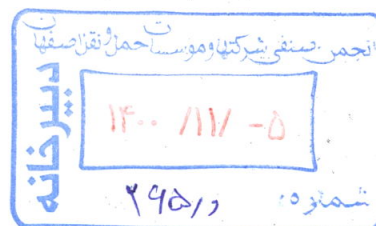 انجمن صنفی شرکتها و موسسات حمل و نقل اصفهان
دبیرخانه
۱۴۰۰ /۱۱/ -۵
شماره: ۲۹۵/د